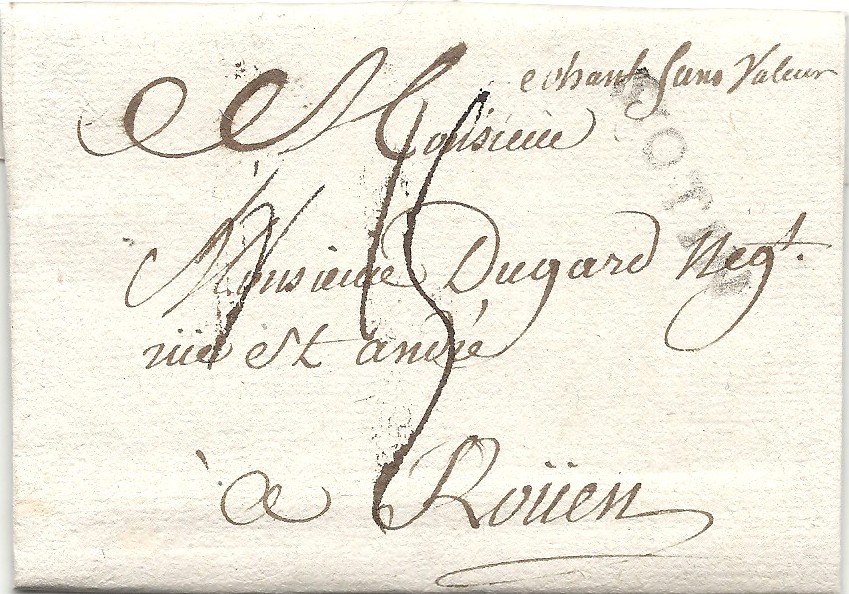 echant Sans Valeur
A Monsieur
Monsieur Dugard Negt.
rue St andré
à Roüen
15